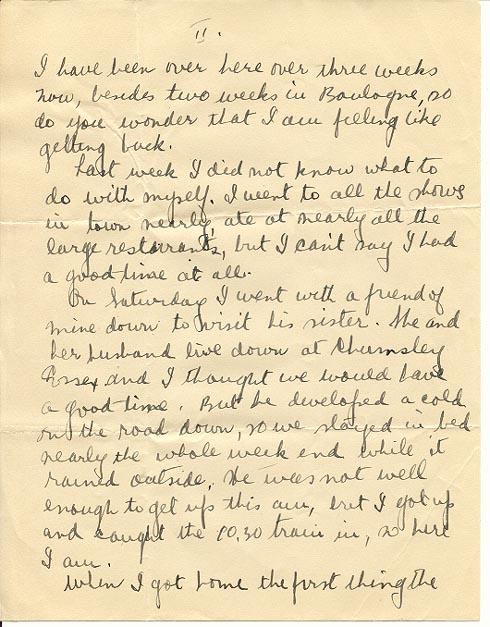 II.
I have been over here over three weeks
now, besides two weeks in Boulogne, so
do you wonder that I am feeling like
getting back.
Last week I did not know what to
do with myself. I went to all the shows
in town nearly, ate at nearly all the
large restaurants, but I can't say I had
a good time at all.
On Saturday I went with a friend of
mine down to visit his sister. She and
her husband live down at
Essex and I thought we would have
a good time. But he developed a cold
on the road down, so we stayed in bed
nearly the whole week end while it
rained outside. He was not well
enough to get up this am, but I got up
and caught the 10.30 train in, so here
I am.
When I got home the first thing the